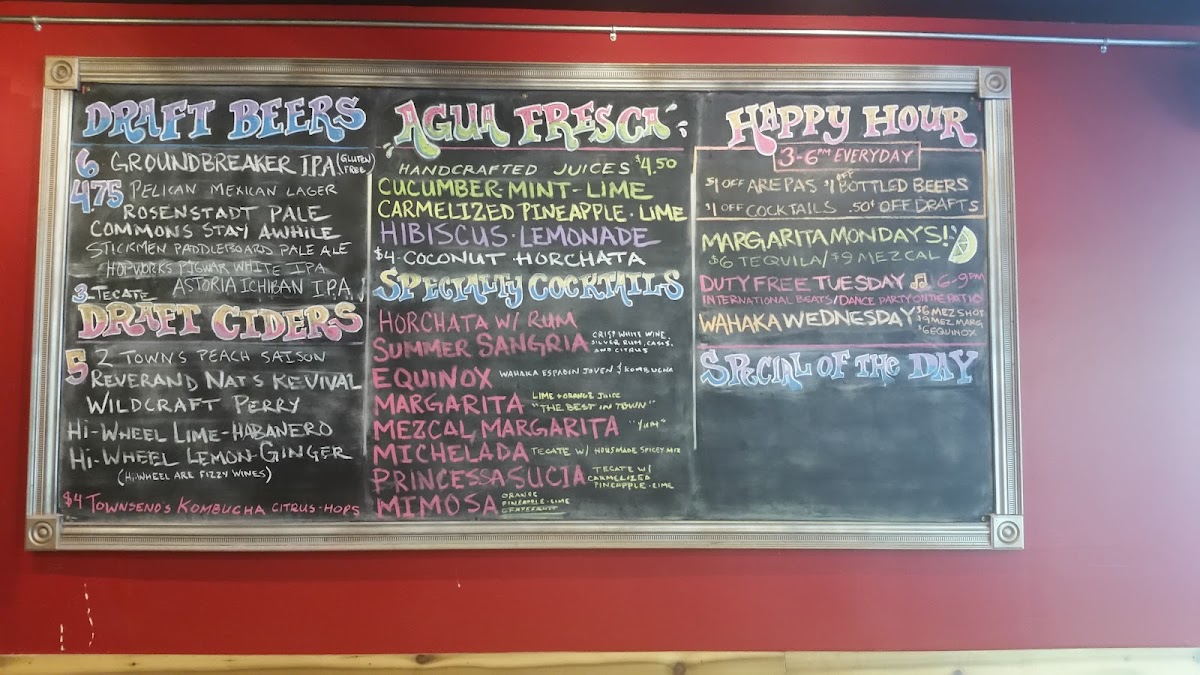 DRAFT BEERS
6 GROUNDBREAKER IPA (GLUTEN FREE)
475 PELICAN MEXICAN LAGER
ROSENSTADT PALE
COMMONS STAY AWHILE
STICKMEN PADDLEBOARD PALE ALE
HOPWORKS PIGWAR WHITE IPA
ASTORIA ICHIBAN I.P.A.
3- TECATE
DRAFT CIDERS
5 2 TOWNS PEACH SAISON
REVERAND NAT'S REVIVAL
WILDCRAFT PERRY
HI-WHEEL LIME-HABANERO
HI-WHEEL LEMON-GINGER
(HI-WHEEL ARE FIZZY WINES)
$4 TOWNSEND'S KOMBUCHA CITRUS-HOPS
AGUA FRESCA
HANDCRAFTED JUICES $4.50
CUCUMBER-MINT-LIME
CARMELIZED PINEAPPLE·LIME
HIBISCUS·LEMONADE
$4 COCONUT HORCHATA
SPECIALTY COCKTAILS
HORCHATA W/ RUM
SUMMER SANGRIA CRISP WHITE WINE,
SILVER RUM,
AND CITRUS
EQUINOX WAHAKA ESPADIN JOVEN & KOMBUCHA
MARGARITA LIME + ORANGE JUICE
"THE BEST IN TOWN"
MEZCAL MARGARITA "YUM"
MICHELADA TECATE W/ HOUSMADE SPICEY MIX
PRINCESSA SUCIA TECATE W/
CARMELIZED
PINEAPPLE-LIME
MIMOSA ORANGE
PINEAPPLE-LIME
GRAPEFRUIT
HAPPY HOUR
3-6PM EVERYDAY
$1 OFF AREPAS $1 OFF BOTTLED BEERS
$1 OFF COCKTAILS .50¢ OFF DRAFTS
MARGARITA MONDAYS!
$6 TEQUILA/$9 MEZCAL
DUTY FREE TUESDAY 6-9PM
INTERNATIONAL BEATS/DANCE PARTY ON THE PATIO!
WAHAKA WEDNESDAY $6 MEZ SHOT
$9 MEZ MARG
$6 EQUINOX
SPECIAL OF THE DAY